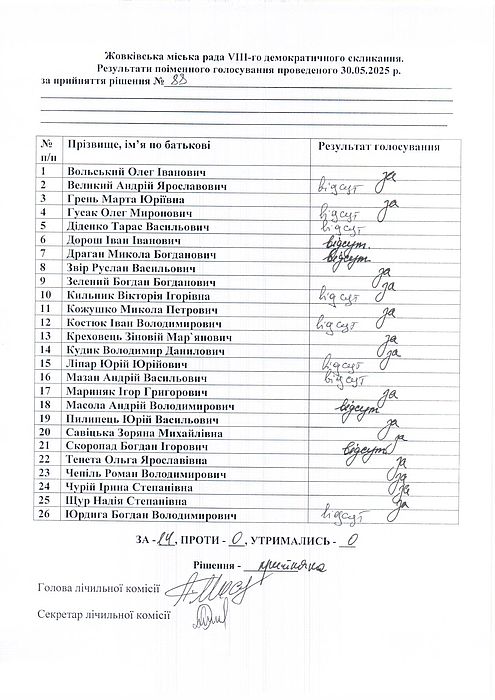 Жовківська міська рада VIII-го демократичного скликання.
Результати поіменного голосування проведеного 30.05.2025 р.
за прийняття рішення № 83
№ п/п Прізвище, ім'я по батькові Результат голосування
1 Вольський Олег Іванович за
2 Великий Андрій Ярославович відсут
3 Грень Марта Юріївна за
4 Гусак Олег Миронович відсут
5 Діденко Тарас Васильович відсут
6 Дорош Іван Іванович відсут.
7 Драган Микола Богданович відсут.
8 Звір Руслан Васильович за
9 Зелений Богдан Богданович за
10 Кильник Вікторія Ігорівна відсут
11 Кожушко Микола Петрович за
12 Костюк Іван Володимирович відсут
13 Креховець Зіновій Мар`янович за
14 Кудик Володимир Данилович за
15 Ліпар Юрій Юрійович відсут
16 Мазан Андрій Васильович відсут
17 Мариняк Ігор Григорович за
18 Масола Андрій Володимирович відсут
19 Пилипець Юрій Васильович за
20 Савіцька Зоряна Михайлівна за
21 Скоропад Богдан Ігорович відсут.
22 Тенета Ольга Ярославівна за
23 Чепіль Роман Володимирович за
24 Чурій Ірина Степанівна за
25 Щур Надія Степанівна за
26 Юрдига Богдан Володимирович відсут
ЗА - 14, ПРОТИ - 0, УТРИМАЛИСЬ - 0
Рішення - прийнято
Голова лічильної комісії
Секретар лічильної комісії